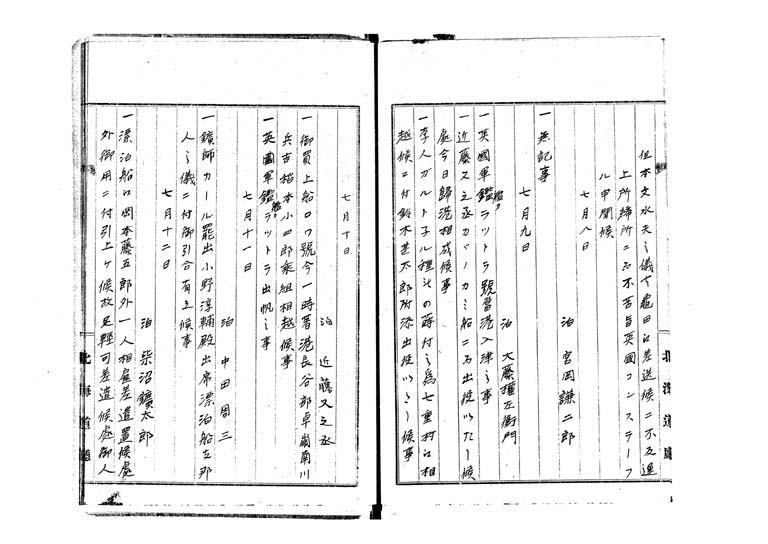 但本文水夫之儀者亀田江差送候ニ不及運
上所締所ニ而不苦旨英國コンスラーフ
ル申聞候
七月八日
泊 宮岡謙二郎
一 無記事
七月九日
泊 大藤權左衛門
一 英國軍鑑ラットラ號當港入津之事
艦カ
一 近藤又之丞カガーカミ船ニ而出役いたし候
處今日歸港相成候事
一 孛人ガルトネル種斗の蒔付之為七重村江相
越候ニ付鈴木甚太郎附添出役いたし候事
七月十日
泊 近藤又之丞
一 御買上船ロワ號今一時著港長谷部卓爾南川
兵吉榕本小四郎乘組相越候事
一 英國軍鑑ラットラ出帆之事
艦カ
七月十一日
泊 中田周三
一 鑛師カール罷出小野淳輔殿出席漂泊船支那
人之儀ニ付御引合有之候事
七月十二日
泊 柴沼鑛太郎
一 漂泊船江岡本藤五郎外一人相雇差遣置候處
外御用ニ付引上ケ候故足輕可差遣候處御人
北海道廳
北海道廳